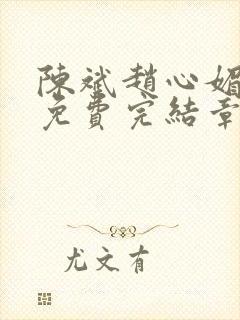 陳斌趙心媚
免費完結章
尤文有